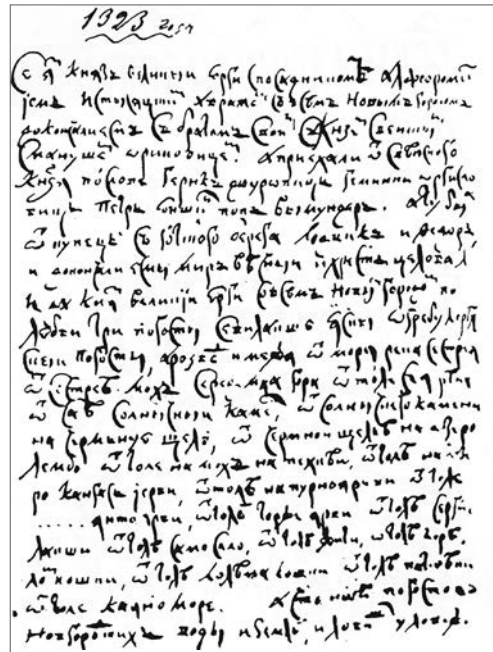 1323 года
Се я князь великыи Юрги с посадником Алфоромѣ
іемъ и с тысяцкій Аврамъ съ всѣмъ Новымъгородомъ
докончали есмъ съ братомъ свои съ княз свѣискы
с Манушем Ориковице. А приехали ѿ свѣиского
князя послове Герикъ Дюуровиць Геминки Орисло
виць Петръ Юншин попъ Вымундеръ. А ту был
ѿ купець съ Готского берега Лодвикъ и Федоръ,
и докончали есмы миръ вѣчныи и хрестъ целовал,
и да княз великіи Юрги со всѣмъ Новыгородо по
любви три погосты Севилакшю Яскы Огребу Корел
скыи погосты, а розвод и межя ѿ моря река Сестрея
ѿ Сестрее мохъ середе мха гора ѿтоле Сая река
ѿ Сае Солнычныи каме, ѿ Солнычнего камени
на Чермьную щелю, ѿ Чермной щелѣ на озеро
Лембо ѿтоле на мохъ на Пехкѣи, ѿтолѣ на озе
ро Кангасъ іерви, ѿтолѣ на Пурноярви ѿтоле
...... Янтоярви, ѿтолѣ Торжеярви ѿтолѣ Серги
лакши ѿтолѣ Самосало, ѿтолѣ Жити, ѿтолѣ Корѣ
ломкошки, ѿтолѣ Колѣмакошки ѿтолѣ
ѿтоле Каяно море. А
Новгородкихъ воды и землѣ и